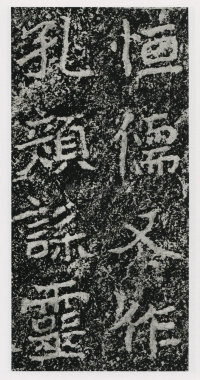 恒儒又作
孔顏誄靈